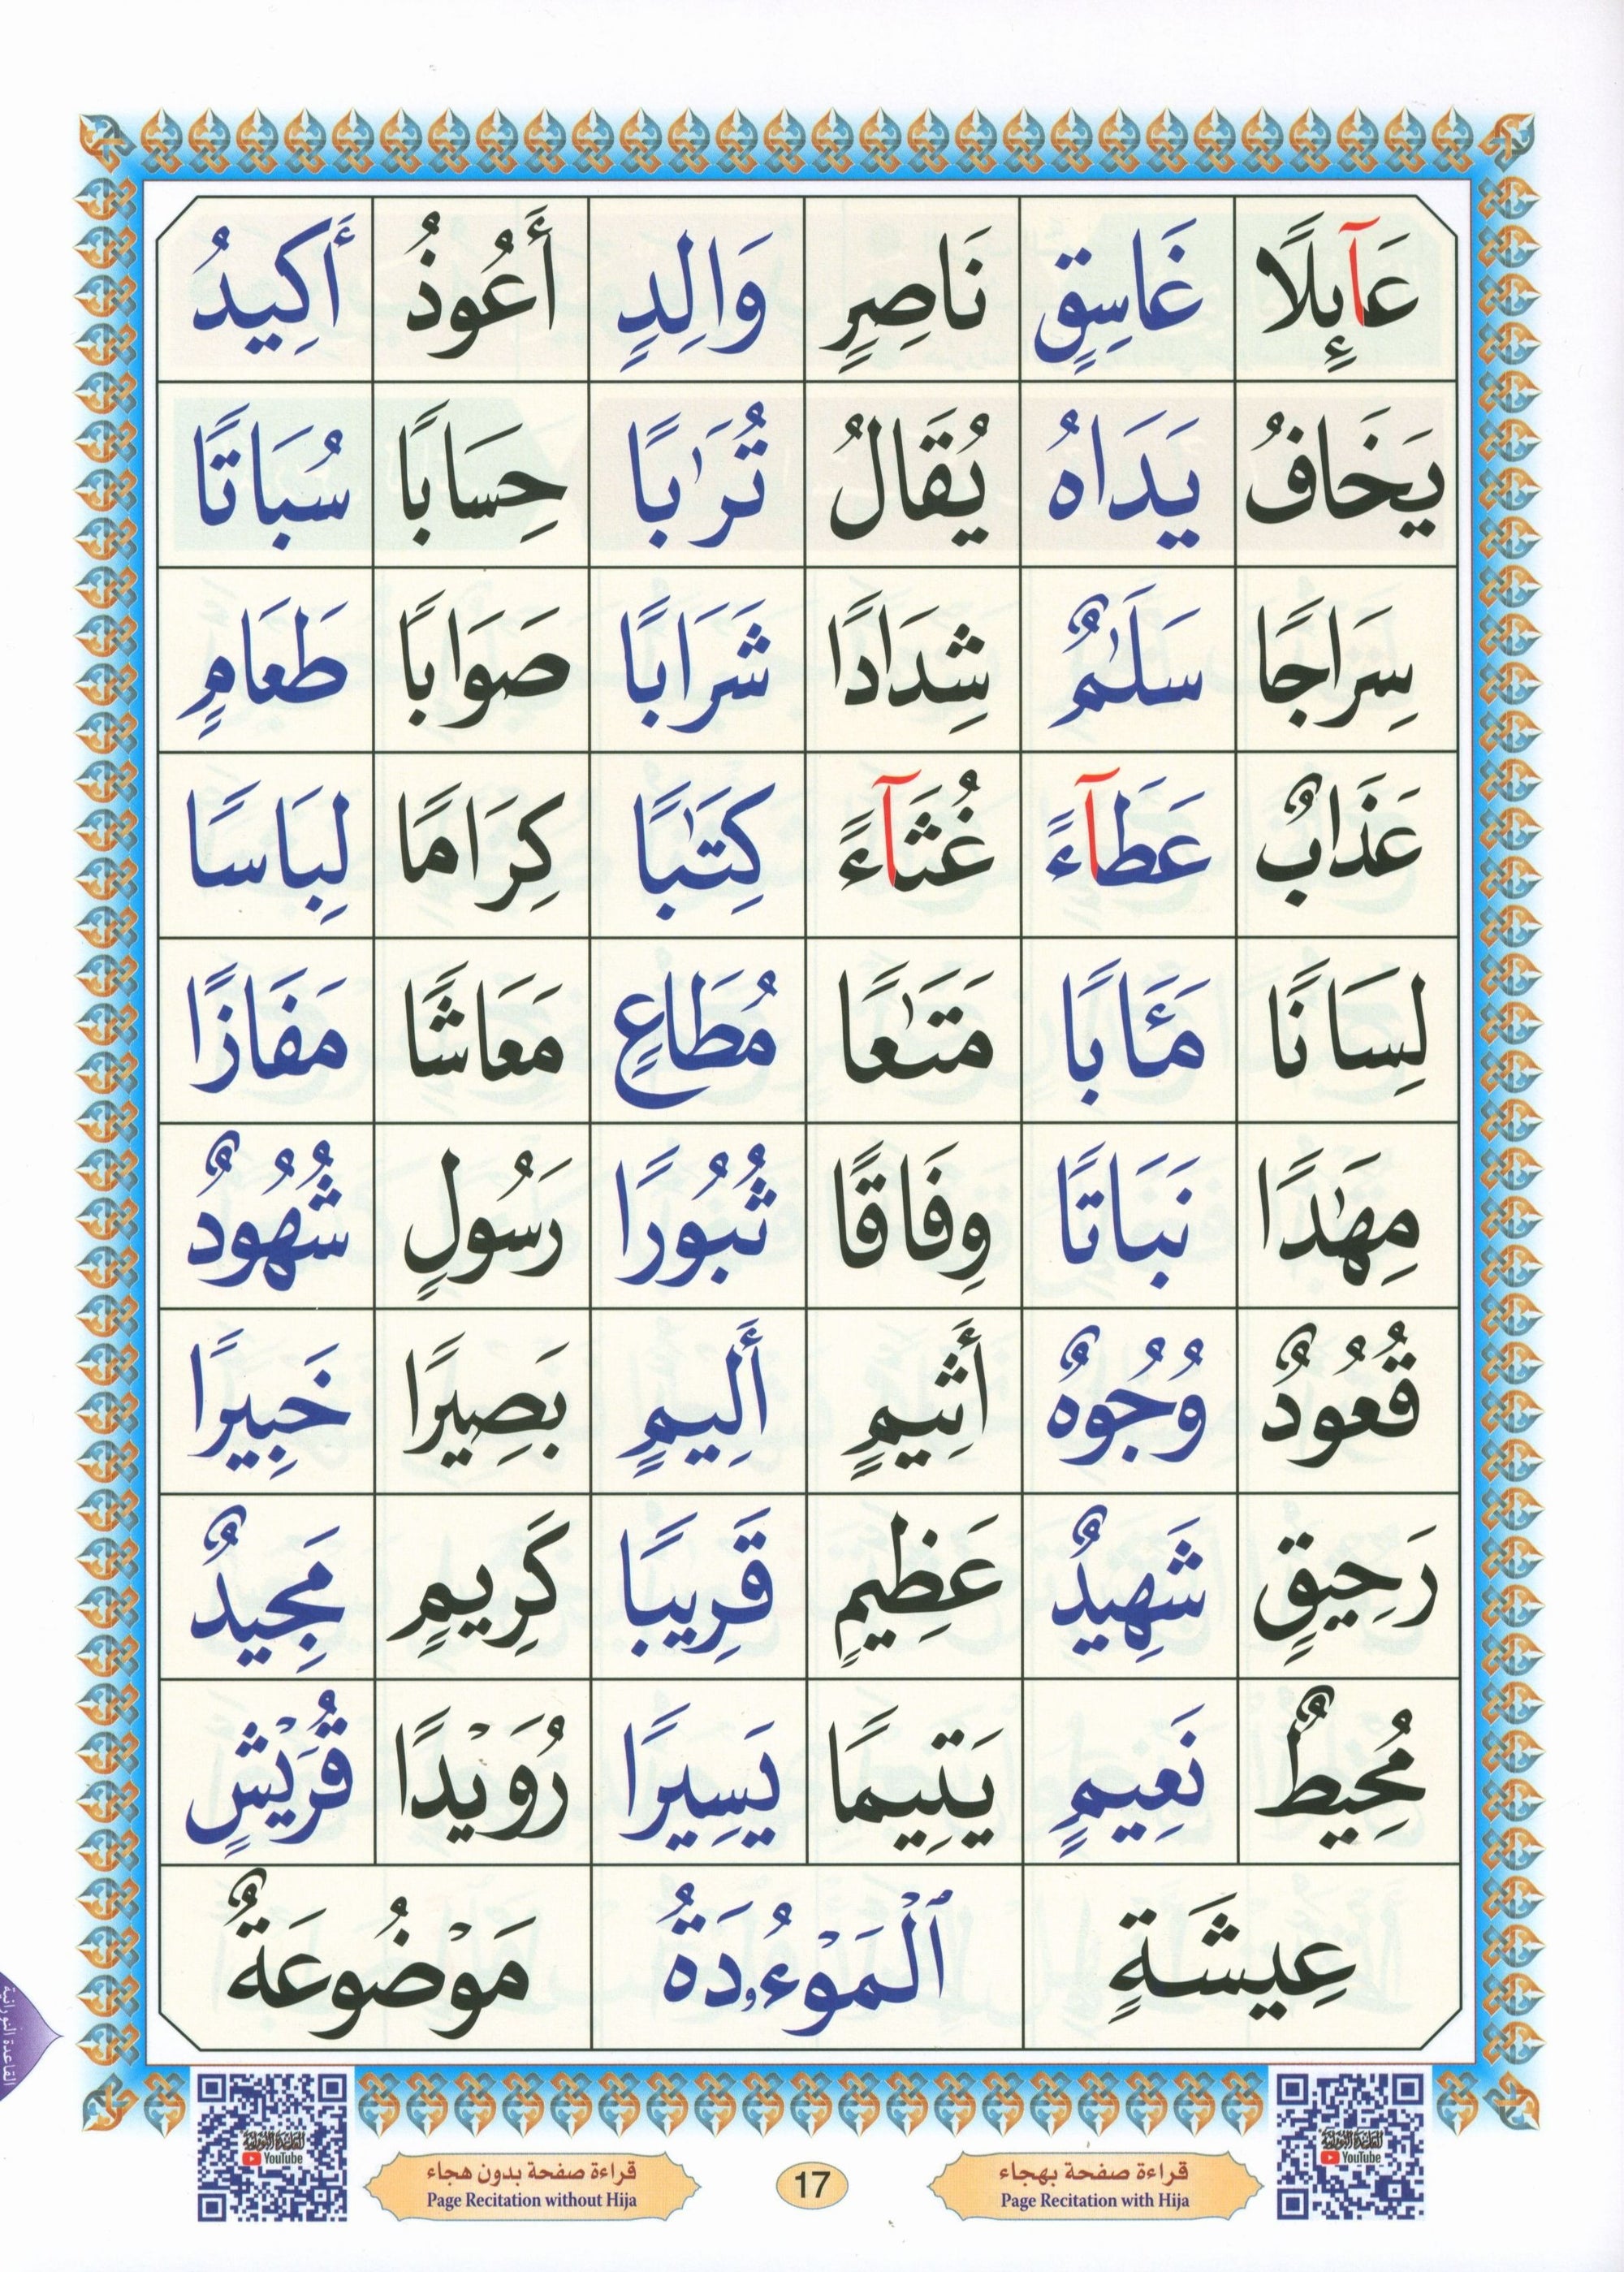 عَآىِٕلًا غَاسِقٍ نَاصِرٍ وَالِدٍ أَعُوذُ أَكِيدُ
يَخَافُ يَدَاهُ يُقَالُ تُرَٰبًا حِسَابًا سُبَاتًا
سِرَاجًا سَلَٰمٌ شِدَادًا شَرَابًا صَوَابًا طَعَامٍ
عَذَابٌ عَطَآءً غُثَآءً كِتَٰبًا كِرَامًا لِبَاسًا
لِسَانًا مَـَٔابًا مَتَٰعًا مُطَاعٍ مَعَاشًا مَفَازًا
مِهَٰدًا نَبَاتًا وِفَاقًا ثُبُورًا رَسُولٍ شُهُودٌ
قُعُودٌ وُجُوهٌ أَثِيمٍ أَلِيمٍ بَصِيرًا خَبِيرًا
رَحِيقٍ شَهِيدٌ عَظِيمٍ قَرِيبًا كَرِيمٍ مَجِيدٌ
مُحِيطٌ نَعِيمٍ يَتِيمًا يَسِيرًا رُوَيْدًا قُرَيْشٍ
عِيشَةٍ ٱلْمَوْءُۥدَةُ مَوْضُوعَةٌ
القاعدة النورانية
القاعدة النورانية
YouTube
قراءة صفحة بهجاء
Page Recitation with Hija
17
قراءة صفحة بدون هجاء
Page Recitation without Hija
القاعدة النورانية
YouTube